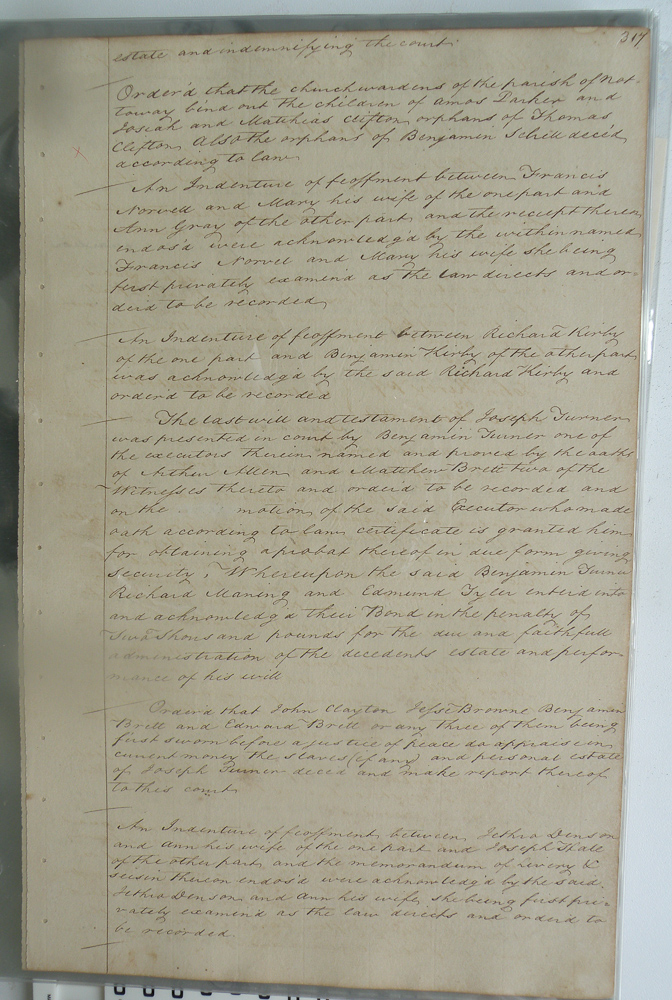 317
estate and indemnifying the court.
Order'd that the churchwardens of the parish of Not-
toway bind out the children of amos Parker and
Josiah and Matthias Clifton orphans of Thomas
Clifton Also the orphans of Benjamin deced
according to law
An Indenture of feoffment between Francis
Norvell and Mary his wife of the one part and
Ann Gray of the other part and the receipt thereon
endos'd were acknowledg'd by the within named
Francis Norvel and Mary his wife she being
first privately examin'd as the law directs and or-
der'd to be recorded
An Indenture of feoffment between Richard Kirby
of the one part and Benjamin Kirby of the other part
was acknowledg'd by the said Richard Kirby and
order'd to be recorded
The last will and testament of Joseph Turner
was presented in court by Benjamin Turner one of
the executors therein named and proved by the oaths
of Arthur Allen and Matthew Brett two of the
Witnesses thereto and order'd to be recorded and
on the motion of the said Executor who made
oath according to law certificate is granted him
for obtaining a probat thereof in due form giving
security, Whereupon the said Benjamin Turner
Richard Maning and Edmund Tyler enter'd into
and acknowledg'd their Bond in the penalty of
Two Thousand pounds for the due and faithfull
administration of the decedents estate and perfor-
mance of his will
Order'd that John Clayton Jesse Browne Benjamin
Brett and Edward Brett or any three of them being
first sworn before a justice of peace do appraise in
current money the slaves (if any) and personal estate
of Joseph Turner deced and make report thereof
to this court
An Indenture of feoffment between Jethro Denson
and Ann his wife of the one part and Joseph
of the other part and the memorandum of Livery &
seisin thereon endos'd were acknowledg'd by the said
Jethro Denson and Ann his wife, she being first pri-
vately examin'd as the law directs and order'd to
be recorded